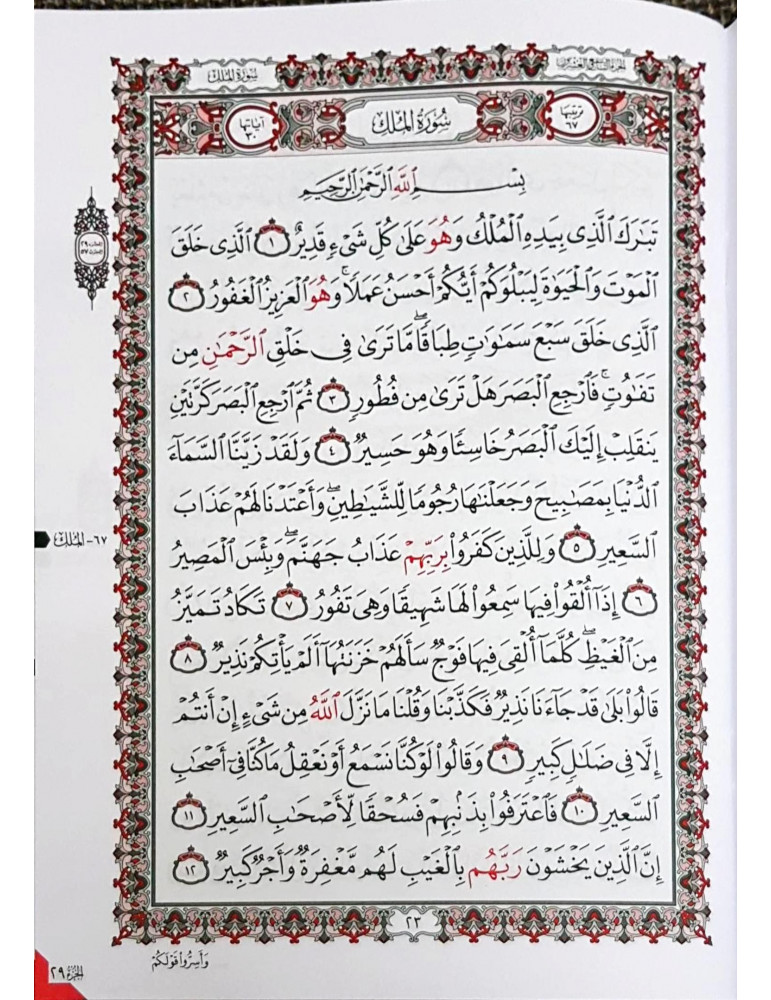 الجزء التاسع والعشرون
سُورَةُ المُلك
ترتيبها
٦٧
سُورَةُ المُلك
آياتها
٣٠
بِسْمِ اللَّهِ الرَّحْمَٰنِ الرَّحِيمِ
تَبَٰرَكَ ٱلَّذِى بِيَدِهِ ٱلْمُلْكُ وَهُوَ عَلَىٰ كُلِّ شَىْءٍ قَدِيرٌ ١ ٱلَّذِى خَلَقَ
ٱلْمَوْتَ وَٱلْحَيَوٰةَ لِيَبْلُوَكُمْ أَيُّكُمْ أَحْسَنُ عَمَلًا ۚ وَهُوَ ٱلْعَزِيزُ ٱلْغَفُورُ ٢
ٱلَّذِى خَلَقَ سَبْعَ سَمَٰوَٰتٍ طِبَاقًا ۖ مَّا تَرَىٰ فِى خَلْقِ ٱلرَّحْمَٰنِ مِن
تَفَٰوُتٍ ۚ فَٱرْجِعِ ٱلْبَصَرَ هَلْ تَرَىٰ مِن فُطُورٍ ٣ ثُمَّ ٱرْجِعِ ٱلْبَصَرَ كَرَّتَيْنِ
يَنقَلِبْ إِلَيْكَ ٱلْبَصَرُ خَاسِئًا وَهُوَ حَسِيرٌ ٤ وَلَقَدْ زَيَّنَّا ٱلسَّمَآءَ
ٱلدُّنْيَا بِمَصَٰبِيحَ وَجَعَلْنَٰهَا رُجُومًا لِّلشَّيَٰطِينِ ۖ وَأَعْتَدْنَا لَهُمْ عَذَابَ
ٱلسَّعِيرِ ٥ وَلِلَّذِينَ كَفَرُوا۟ بِرَبِّهِمْ عَذَابُ جَهَنَّمَ ۖ وَبِئْسَ ٱلْمَصِيرُ
٦ إِذَآ أُلْقُوا۟ فِيهَا سَمِعُوا۟ لَهَا شَهِيقًا وَهِىَ تَفُورُ ٧ تَكَادُ تَمَيَّزُ
مِنَ ٱلْغَيْظِ ۖ كُلَّمَآ أُلْقِىَ فِيهَا فَوْجٌ سَأَلَهُمْ خَزَنَتُهَآ أَلَمْ يَأْتِكُمْ نَذِيرٌ ٨
قَالُوا۟ بَلَىٰ قَدْ جَآءَنَا نَذِيرٌ فَكَذَّبْنَا وَقُلْنَا مَا نَزَّلَ ٱللَّهُ مِن شَىْءٍ إِنْ أَنتُمْ
إِلَّا فِى ضَلَٰلٍ كَبِيرٍ ٩ وَقَالُوا۟ لَوْ كُنَّا نَسْمَعُ أَوْ نَعْقِلُ مَا كُنَّا فِىٓ أَصْحَٰبِ
ٱلسَّعِيرِ ١٠ فَٱعْتَرَفُوا۟ بِذَنۢبِهِمْ فَسُحْقًا لِّأَصْحَٰبِ ٱلسَّعِيرِ ١١
إِنَّ ٱلَّذِينَ يَخْشَوْنَ رَبَّهُم بِٱلْغَيْبِ لَهُم مَّغْفِرَةٌ وَأَجْرٌ كَبِيرٌ ١٢
٢٣
وَأَسِرُّوا۟ قَوْلَكُمْ
٦٧- المُلك
الجزء ٢٩